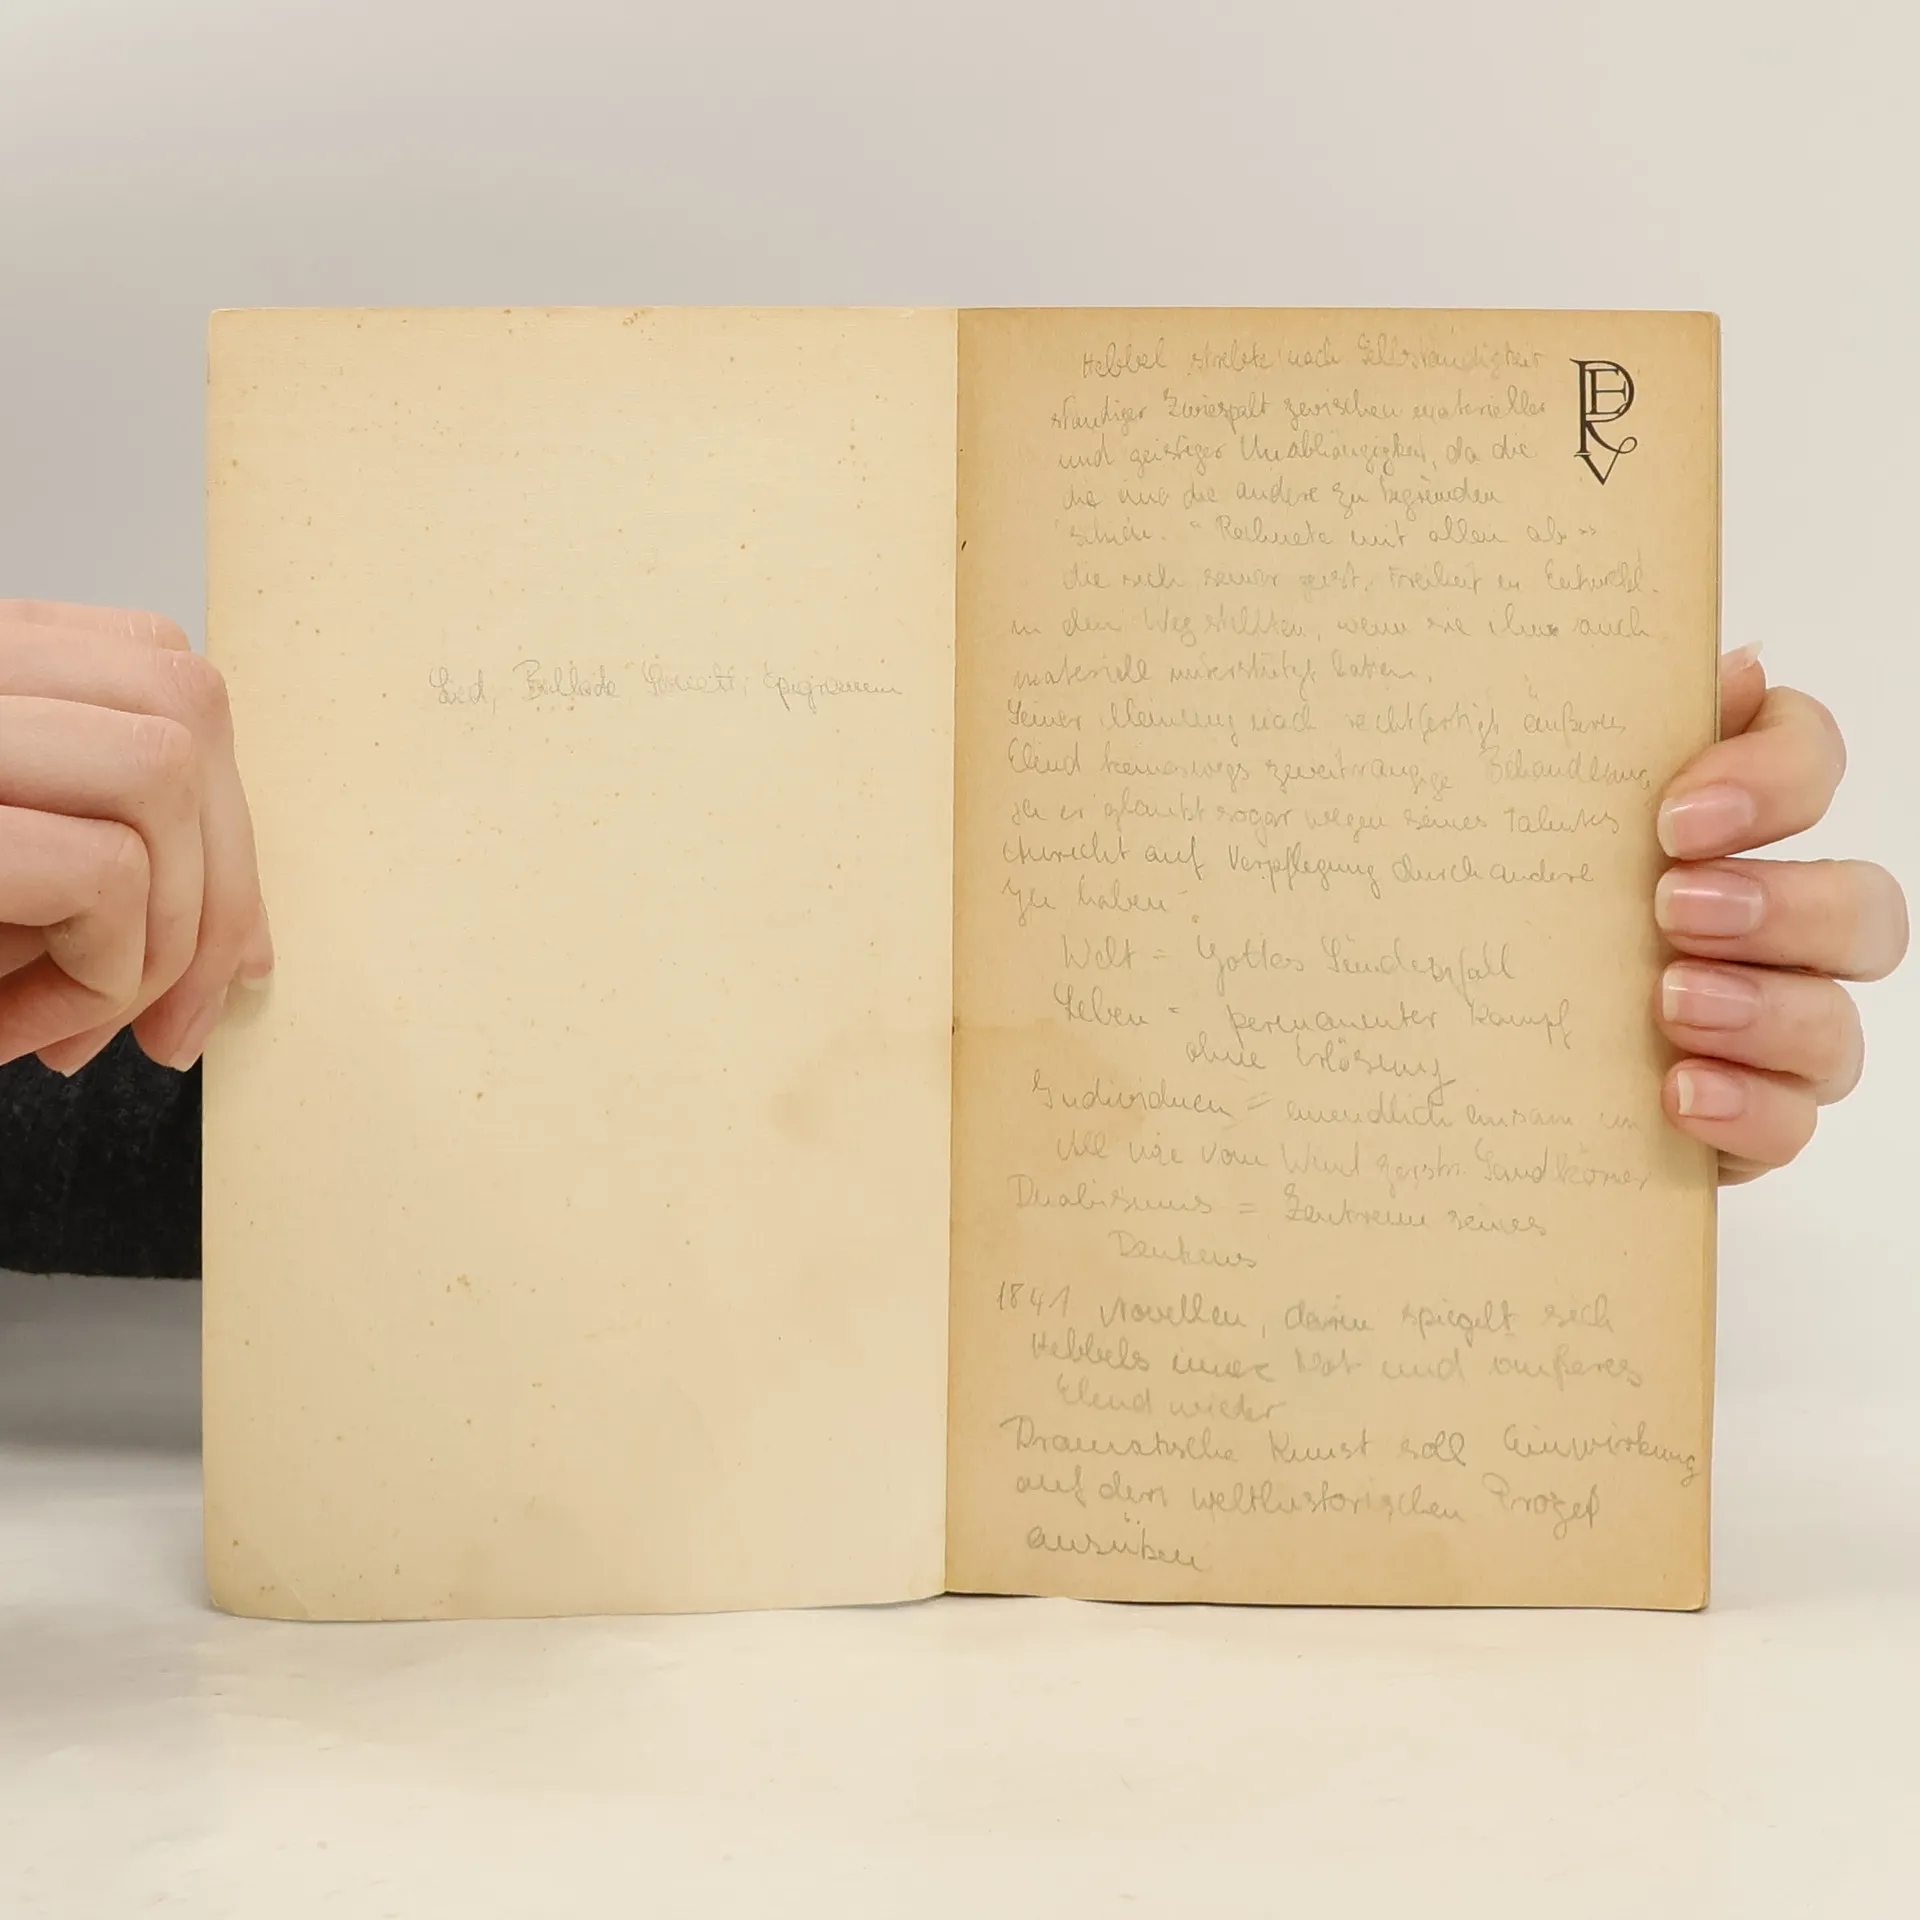 Lied, Ballade Sonett, Epigramm
Hebbel strebte nach Selbständigkeit
ständiger Zwiespalt zwischen materieller
und geistiger Unabhängigkeit, da die
die und die andere zu
schien. "Rechnete mit allen ab"
die sich seiner geist. Freiheit u. Entwickl.
in den Weg stellten, wenn sie ihm auch
materiell unterstützt hatten.
Seiner Meinung nach rechtfertigt äußeres
Elend keineswegs zweitrangige Behandlung
ja er glaubt sogar wegen seines Talentes
Anrecht auf Verpflegung durch andere
zu haben.
Welt = Gottes Sündenfall
Leben = permanenter Kampf
ohne Erlösung
Individuen = unendlich einsam im
All wie vom Wind zerstr. Sandkörner
Dualismus = Zentrum seines
Denkens
1841 Novellen, darin spiegelt sich
Hebbels innere Not und äußeres
Elend wieder
Dramatische Kunst soll Einwirkung
auf den welthistorischen Prozeß
ausüben